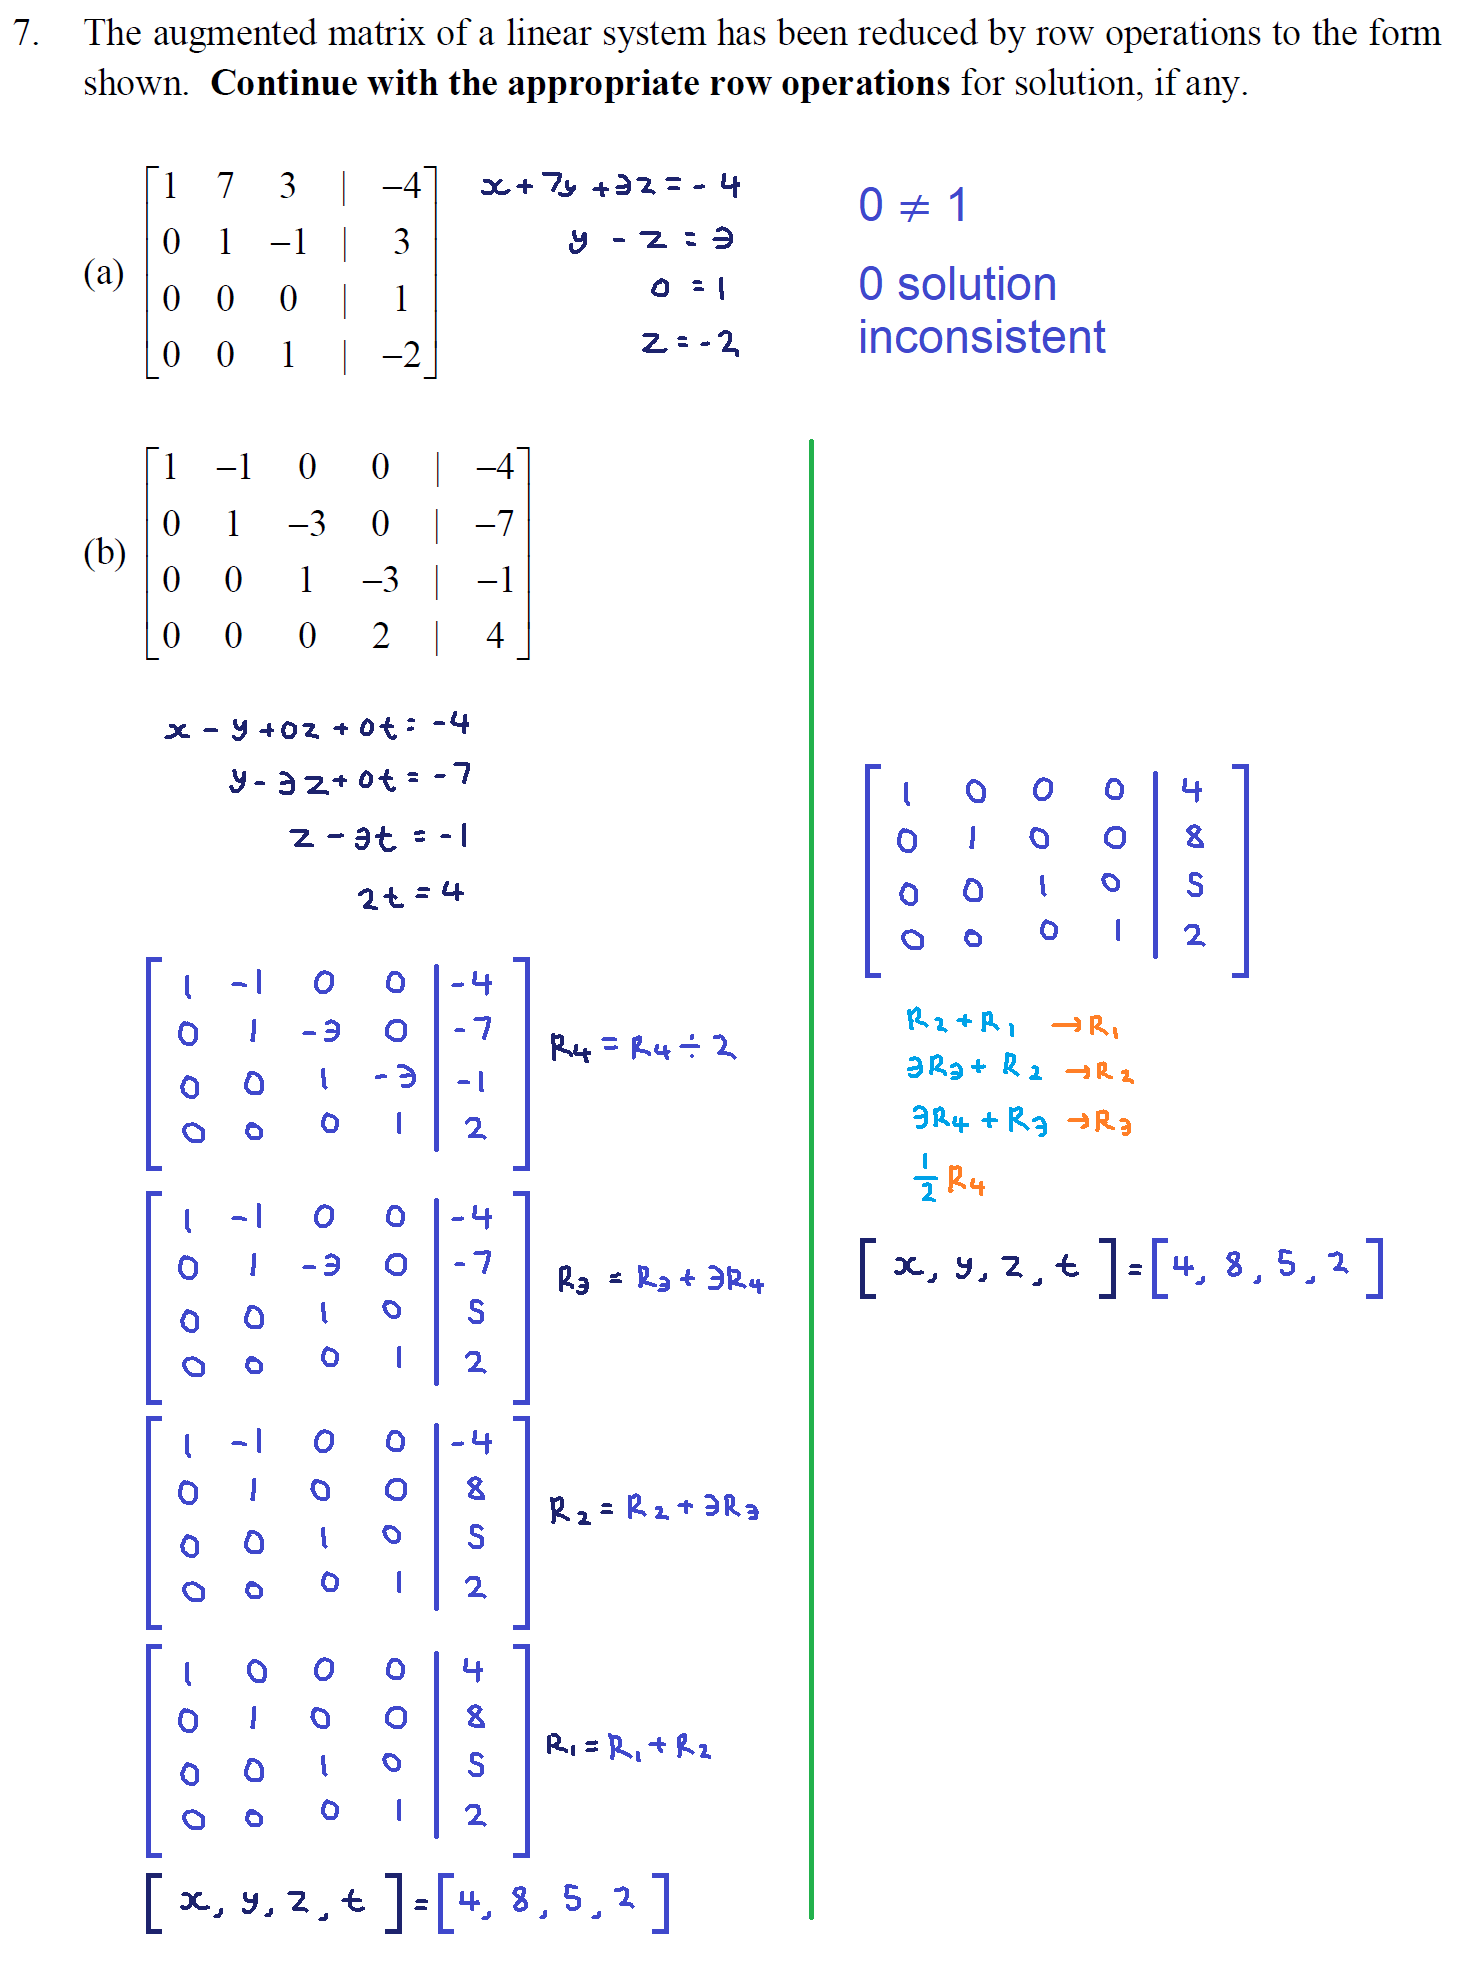 7. The augmented matrix of a linear system has been reduced by row operations to the form
shown. Continue with the appropriate row operations for solution, if any.
(a)
1 7 3 | −4
0 1 −1 | 3
0 0 0 | 1
0 0 1 | −2
x + 7y + 3z = - 4
y - z = 3
0 = 1
z = - 2
0 ≠ 1
0 solution
inconsistent
(b)
1 −1 0 0 | −4
0 1 −3 0 | −7
0 0 1 −3 | −1
0 0 0 2 | 4
x - y + 0z + 0t = -4
y - 3z + 0t = -7
z - 3t = -1
2t = 4
1 -1 0 0 | -4
0 1 -3 0 | -7
0 0 1 -3 | -1
0 0 0 1 | 2
R4 = R4 ÷ 2
1 -1 0 0 | -4
0 1 -3 0 | -7
0 0 1 0 | 5
0 0 0 1 | 2
R3 = R3 + 3R4
1 -1 0 0 | -4
0 1 0 0 | 8
0 0 1 0 | 5
0 0 0 1 | 2
R2 = R2 + 3R3
1 0 0 0 | 4
0 1 0 0 | 8
0 0 1 0 | 5
0 0 0 1 | 2
R1 = R1 + R2
[ x, y, z, t ] = [ 4, 8, 5, 2 ]
1 0 0 0 | 4
0 1 0 0 | 8
0 0 1 0 | 5
0 0 0 1 | 2
R2 + R1 → R1
3R3 + R2 → R2
3R4 + R3 → R3
1/2 R4
[ x, y, z, t ] = [ 4, 8, 5, 2 ]